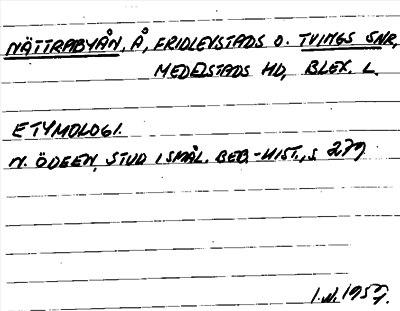 NÄTTRABYÅN, Å, FRIDLEVSTADS O. TVINGS SNR,
MEDELSTADS HD, BLEK. L.
ETYMOLOGI.
N. ÖDEEN, STUD I SMÅL. BEB.-HIST., S 279
I.N. 1959.